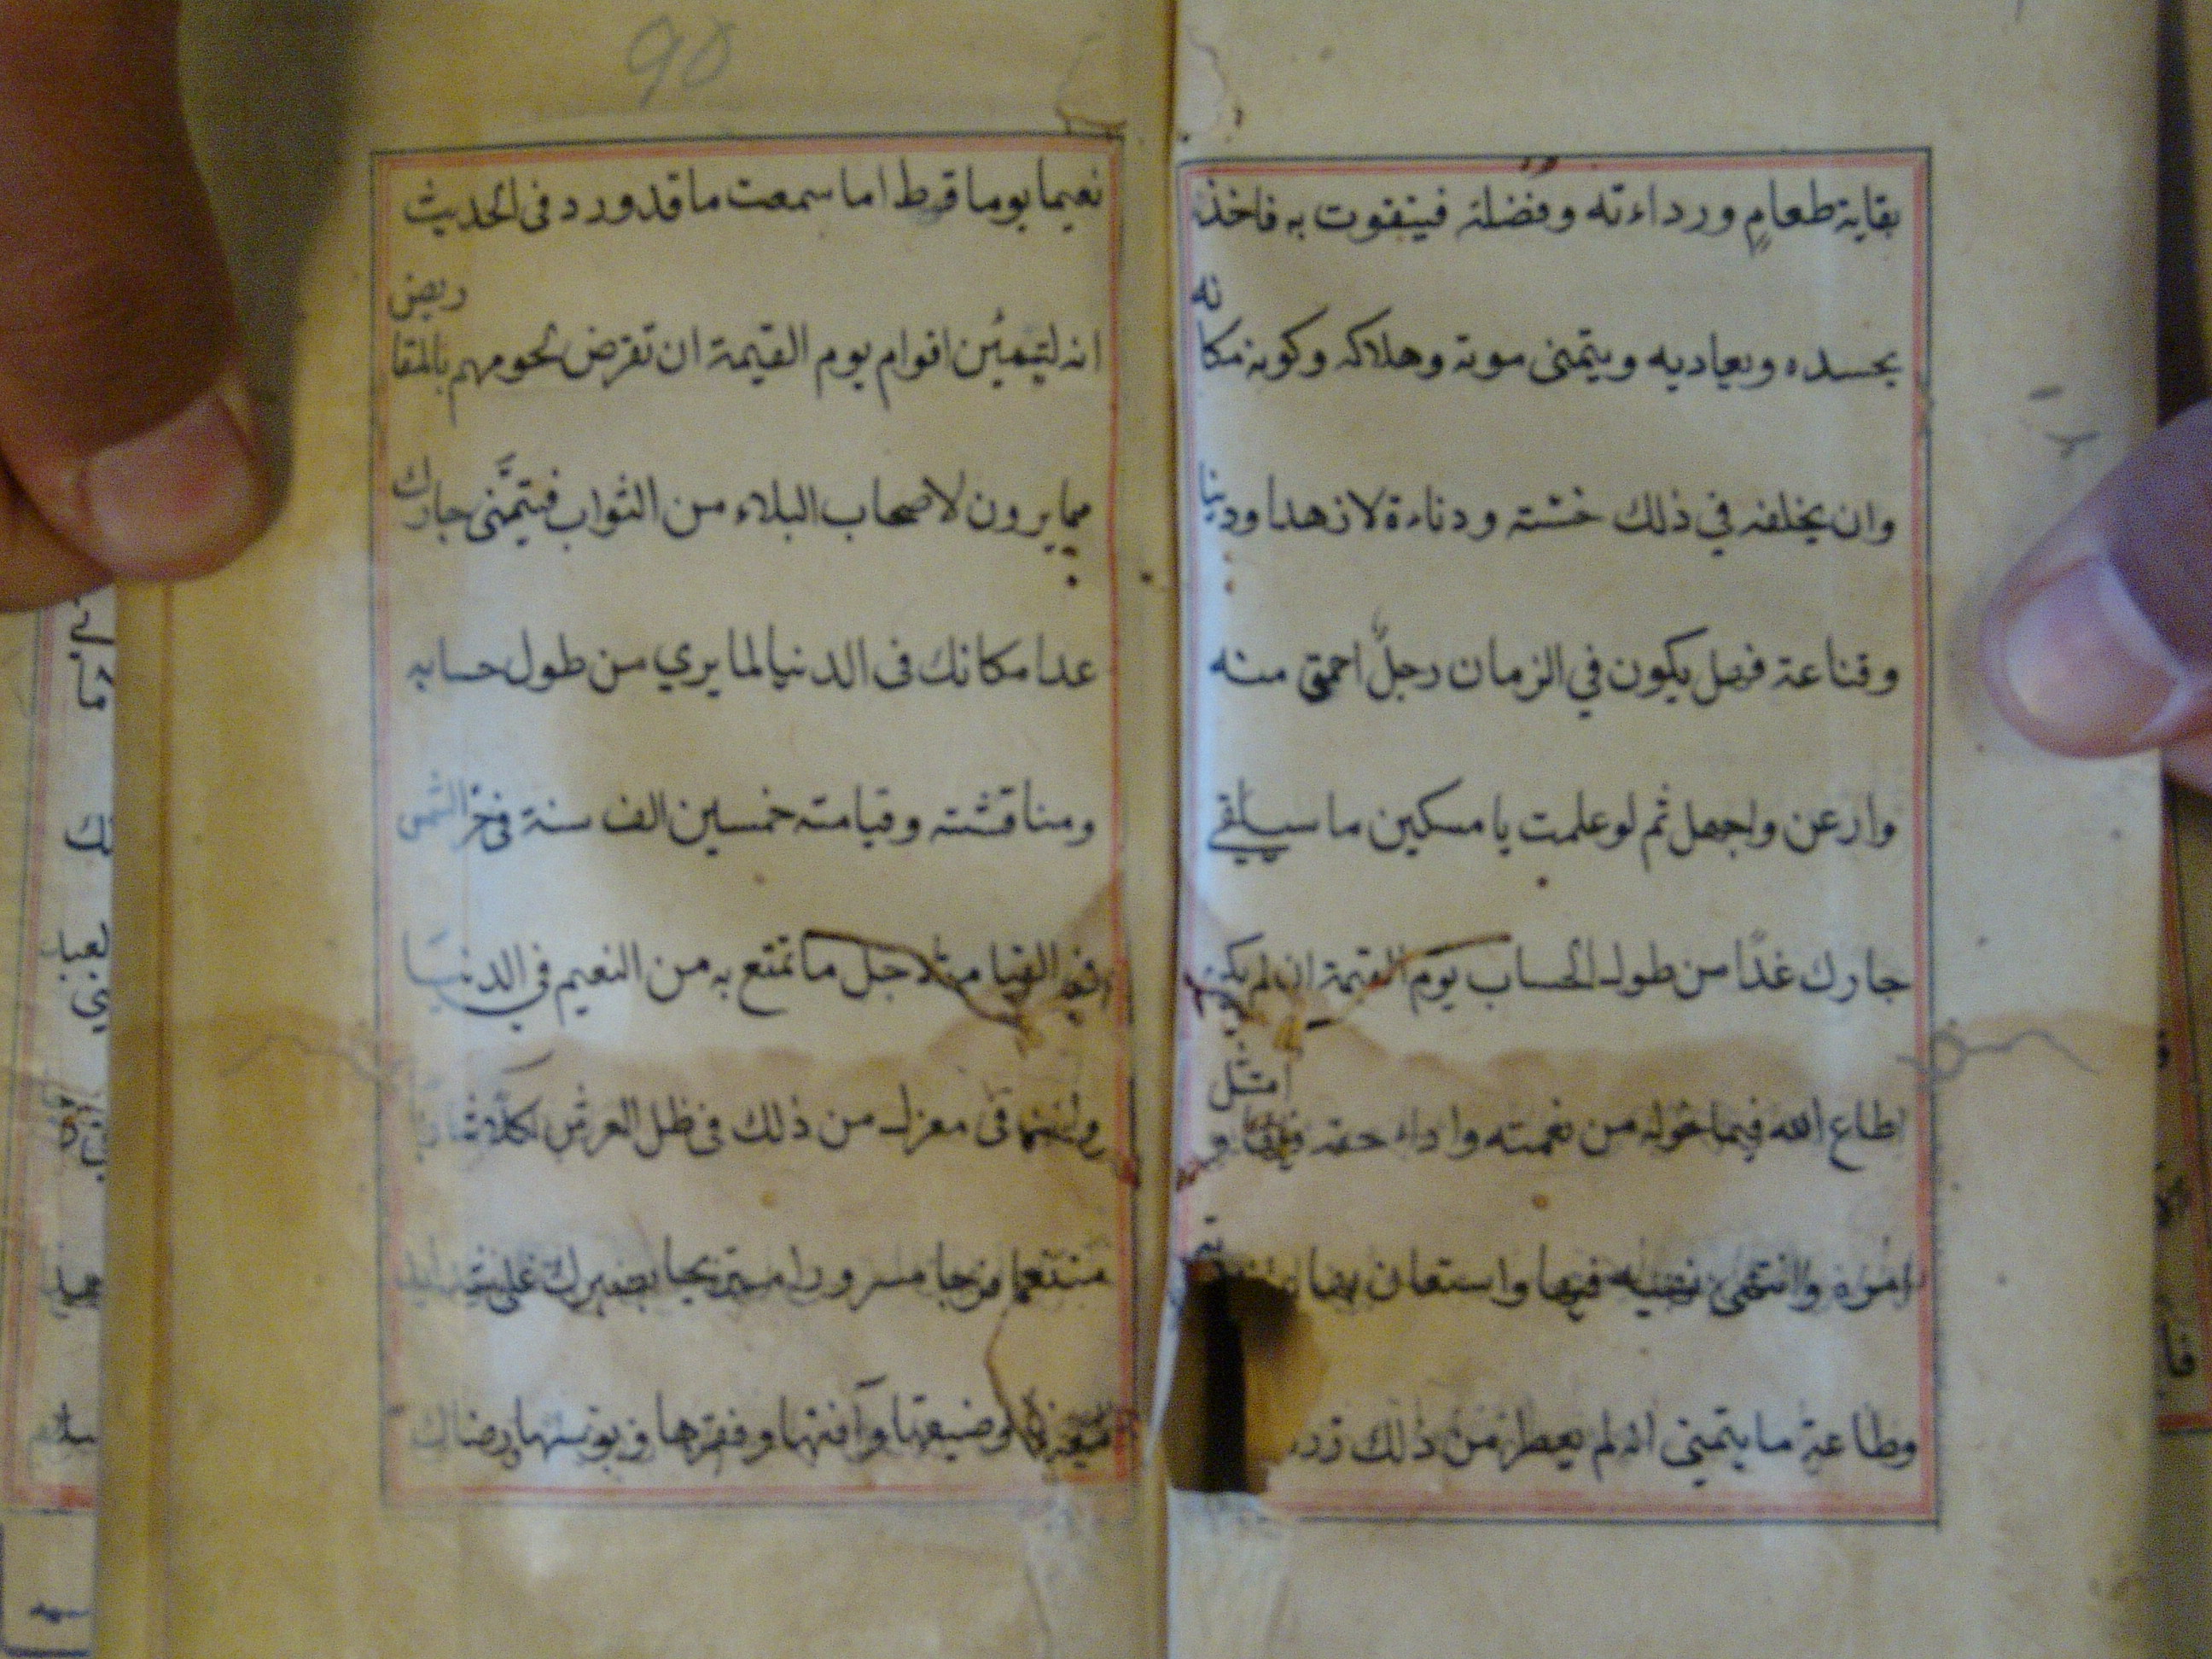 بقاية طعام ورداءته وفضلة فيتقوت به فاخذ
يحسده ويعاديه ويتمنى موته وهلاكه وكونه مكانه
وان يخلفه في ذلك خسته ودناءة لا زهدا ودينا
وقناعة فهل يكون في الزمان رجلٌ احمق منه
وارعن واجهل ثم لو علمت يا مسكين ما سيلقى
جارك غدًا من طول الحساب يوم القيمة ان لم يكن
اطاع الله فيما خوله من نعمته واداء حقه فيها وامتثل
امره وانتهى نهيه فيها واستعان بها
وطاعة ما يتمنى انه لم يعط من ذلك ذرة
90
نعيما يوما قط اما سمعت ما قد ورد فى الحديث
انه ليتمنين اقوام يوم القيمة ان تقرض لحومهم بالمقاريض
مما يرون لاصحاب البلاء من الثواب فيتمنَّى جارك
غدا مكانك فى الدنيا لما يري من طول حسابه
ومناقشته وقيامته خمسين الف سنة فى حرّ الشمس
القيامة لاجل ما تمتع به من النعيم في الدنيا
وانت فى معزل من ذلك فى ظل العرش اكلا شاربا
متنعما فرحا مسرورا مستريحا لصبرك على شدايد
وضيقها وآفتها وفقرها وبؤسها ورضاك